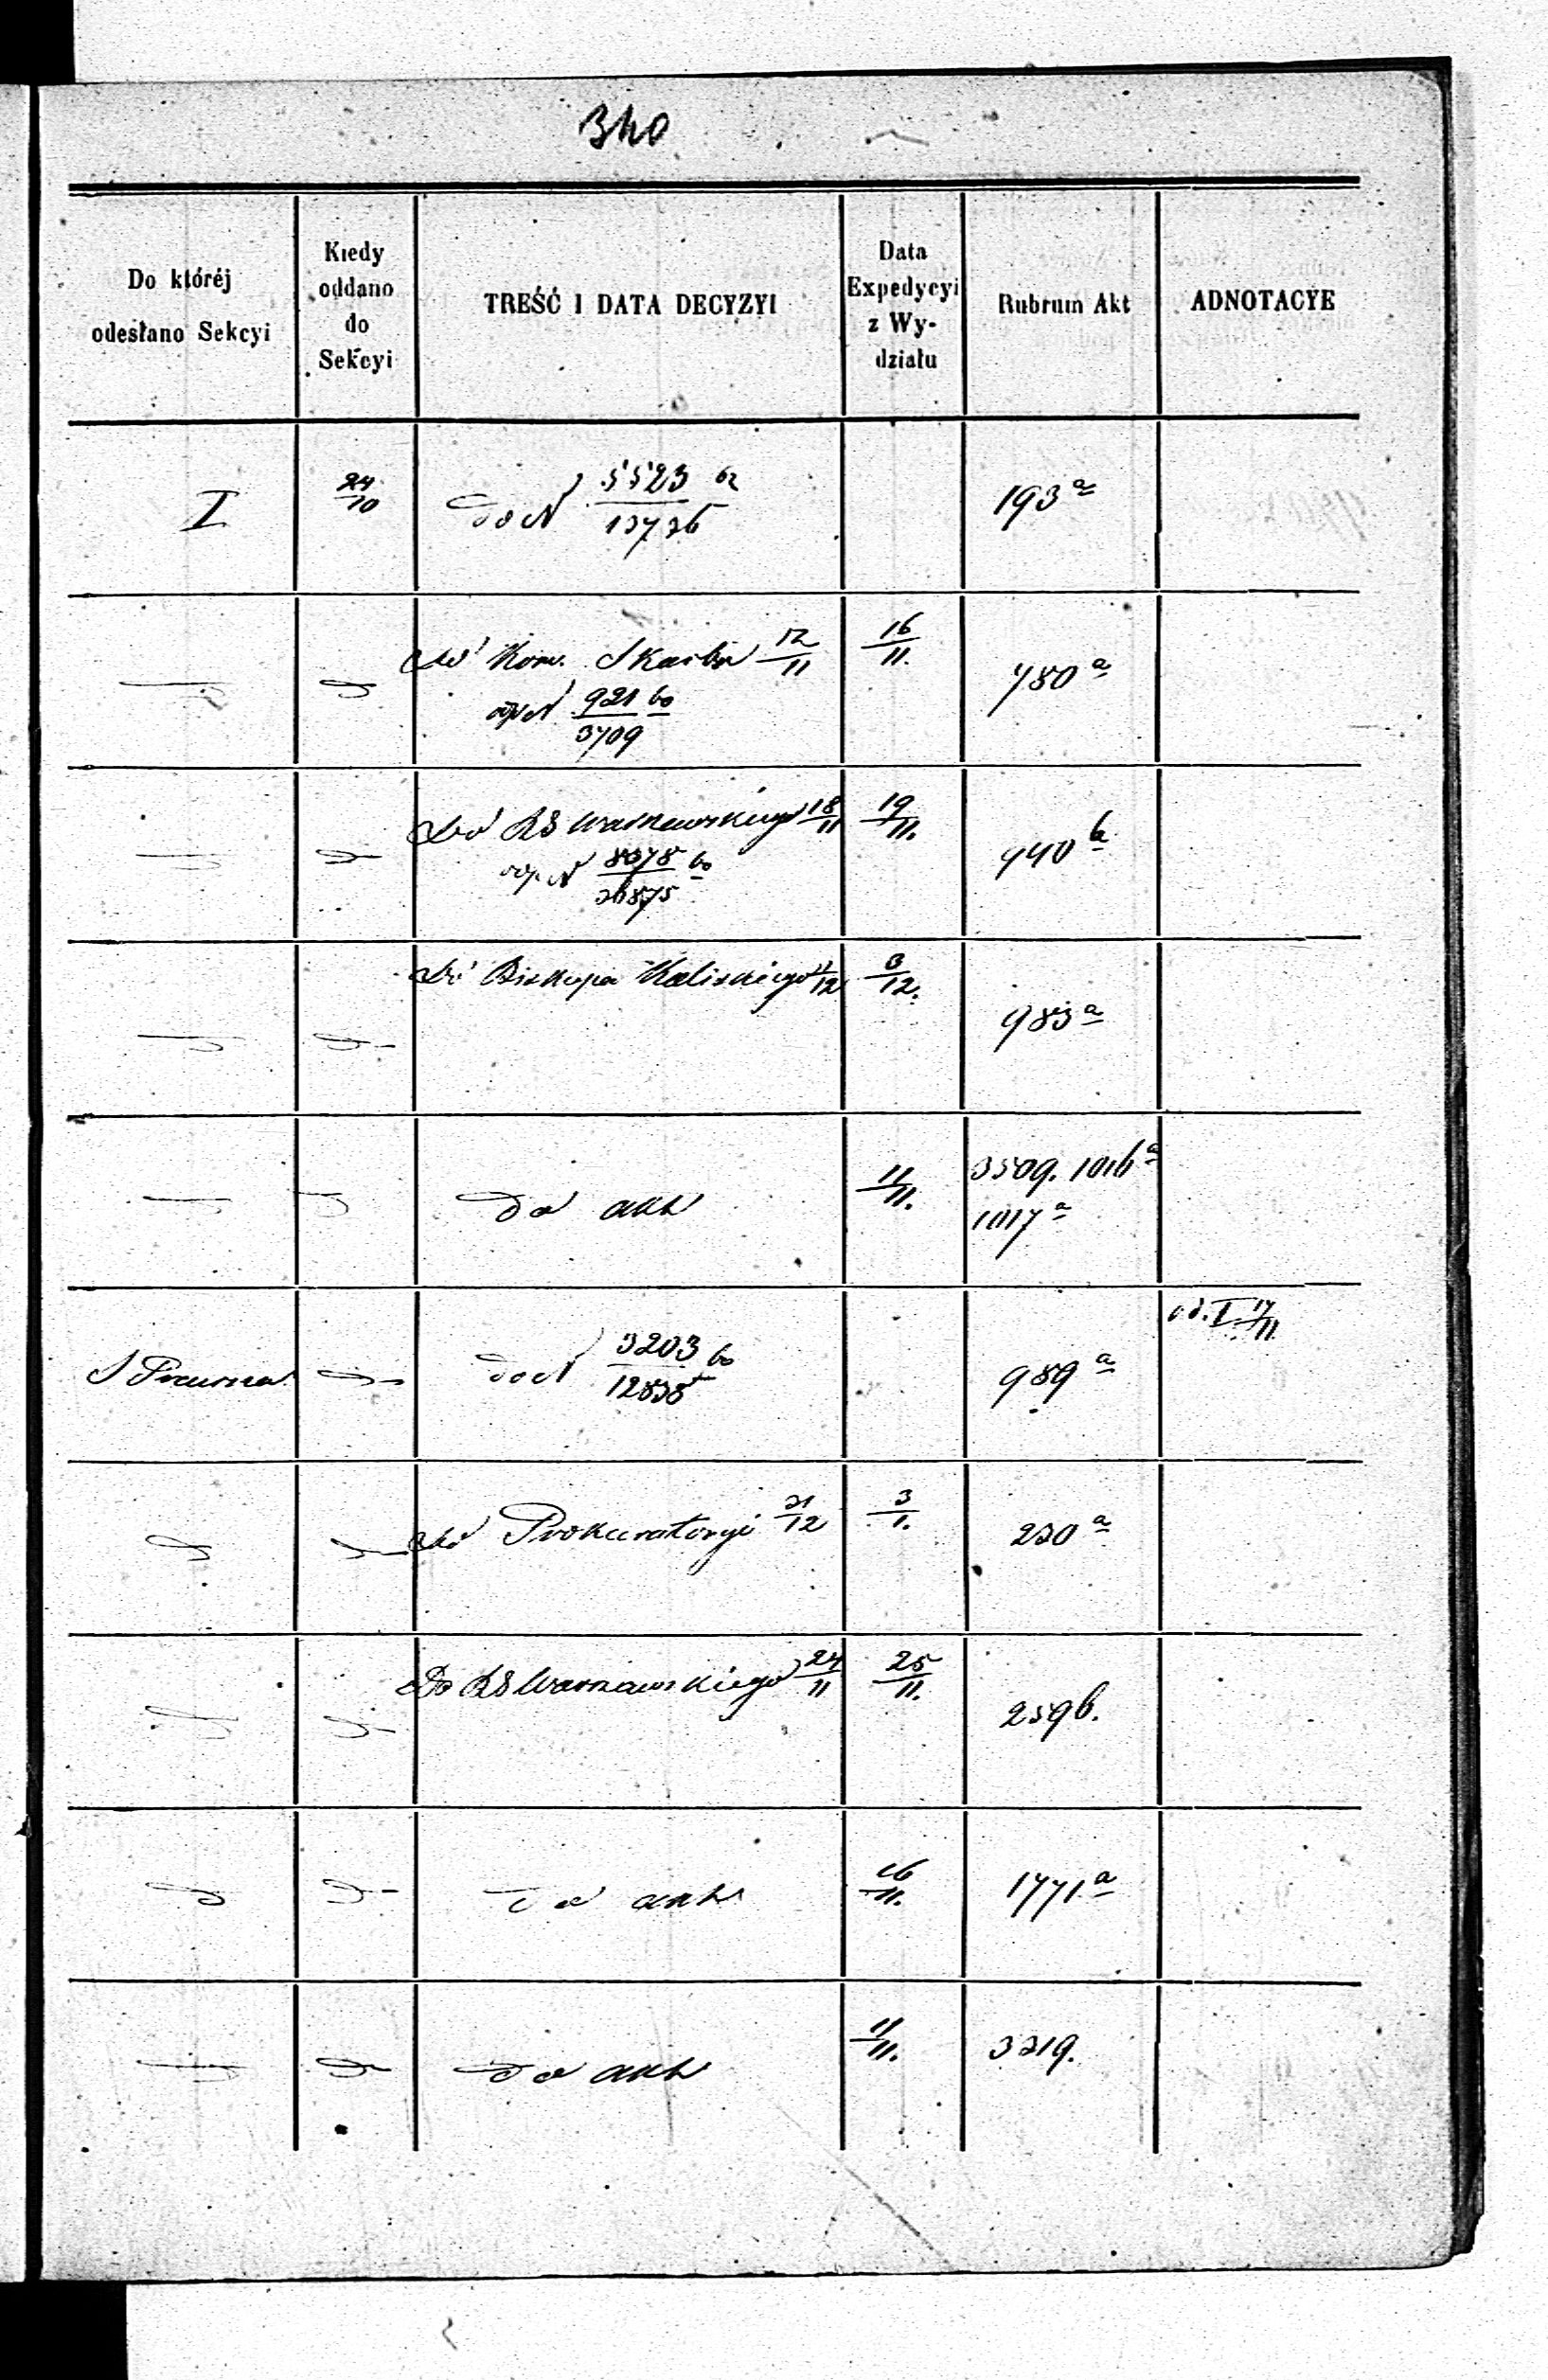 340
Do któréj odesłano Sekcyi
Kiedy oddano do Sekcyi
TREŚĆ I DATA DECYZYI
Data Expedycyi z Wydziału
Rubrum Akt
ADNOTACYE
I 24/10 do N 5523/13726 193 a
Do Kom. Skarbu 12/11 16/11. 780 a
N 921/3709
Do RG Warszawskiego 18/11 19/11. 440 b
N 8078/26875
Do Biskupa Kaliskiego /12 3/12. 983 a
do akt 11/11. 3509. 1016 a
1017 a
od. I 17/11
S Prawna do N 3203/12838 989 a
Do Prokuratoryi 31/12 3/1. 230 a
Do RG Warszawskiego 24/11 25/11. 259 b.
do akt 16/11. 1771 a
do akt 11/11. 3319.